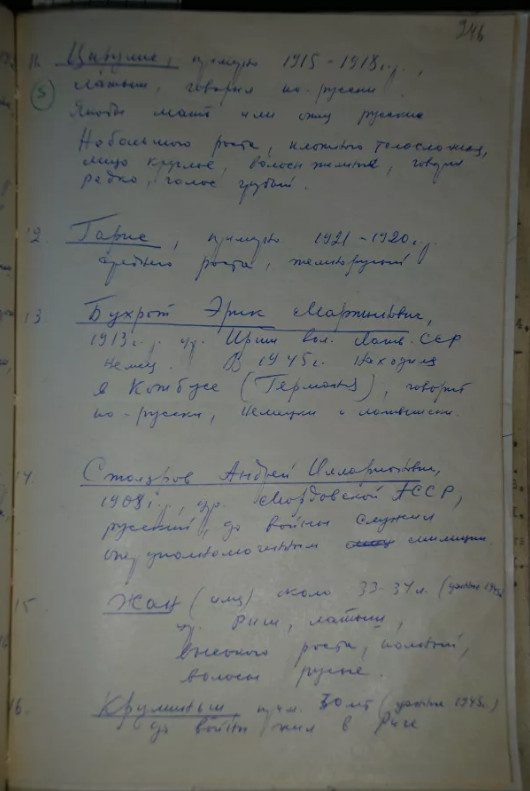 246
11. Цирулис, примерно 1915-1918 г.р.,
латыш, говорил по-русски
5
Якобы мать или отец русские
Небольшого роста, плотного телосложен.,
лицо круглое, волосы темные, говорил
редко, голос грубый.
12 , примерно 1921-1920 г.р.
среднего роста, темнорусый
13 Бухрот Эрик Мартынович,
1913 г.р., ур. Латв. ССР
немец. В 1945 г. находился
в Котбусе (Германия), говорит
по-русски, немецки и латышски.
14 Столяров Андрей Илларионович,
1908 г.р., ур. Мордовской АССР,
русский, до войны служил
оперуполномоченным милиции.
15 Жан (имя) около 33-34 л.
ур. Риги, латыш,
высокого роста, полный,
волосы русые.
16. прим. 30 лет ( 1945 г.)
до войны жил в Риге